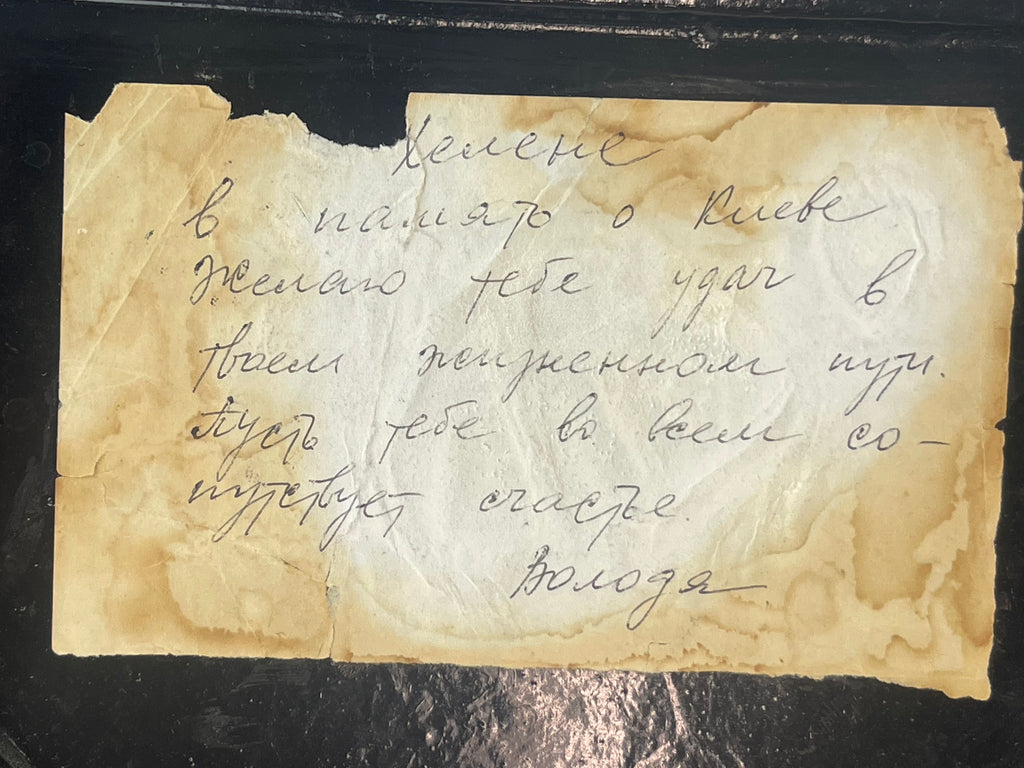 Хелене
в память о Киеве
Желаю тебе удач в
твоем жизненном пути.
Пусть тебе во всем со-
путствует счастье.
Володя